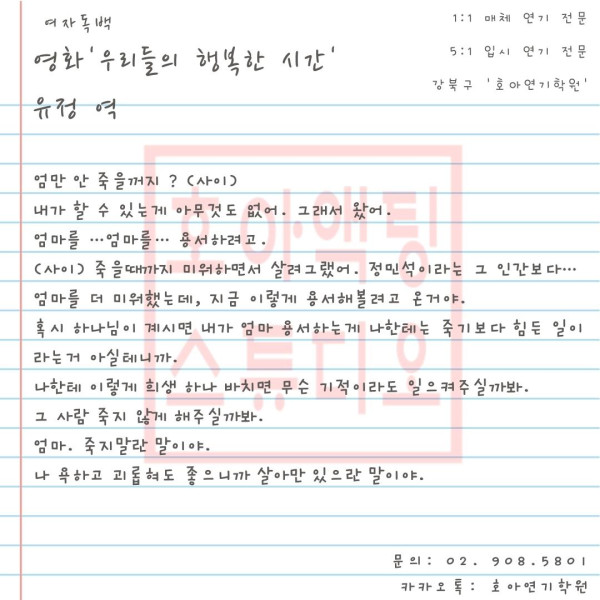 여자독백
1:1 매체 연기 전문
영화'우리들의 행복한 시간'
5:1 입시 연기 전문
강북구 '호아연기학원'
유정 역
엄만 안 죽을꺼지 ? (사이)
내가 할 수 있는게 아무것도 없어. 그래서 왔어.
엄마를 …엄마를… 용서하려고.
(사이) 죽을때까지 미워하면서 살려그랬어. 정민석이라는 그 인간보다…
엄마를 더 미워했는데, 지금 이렇게 용서해볼려고 온거야.
혹시 하나님이 계시면 내가 엄마 용서하는게 나한테는 죽기보다 힘든 일이
라는거 아실테니까.
나한테 이렇게 희생 하나 바치면 무슨 기적이라도 일으켜주실까봐.
그 사람 죽지 않게 해주실까봐.
엄마. 죽지말란 말이야.
나 욕하고 괴롭혀도 좋으니까 살아만 있으란 말이야.
호아액팅
스튜디오
문의: 02. 908.5801
카카오톡: 호아연기학원